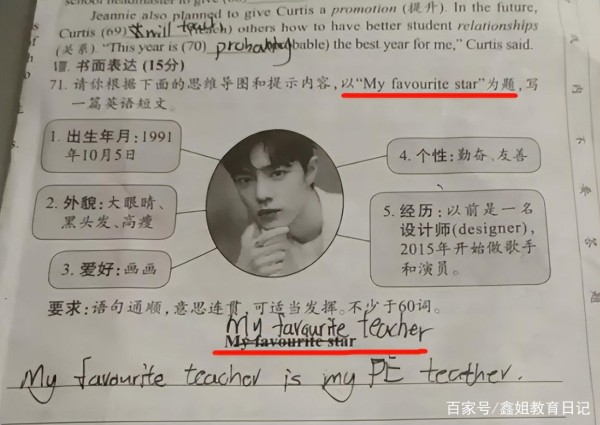 school headmaster to give
Jeannie also planned to give Curtis a promotion (提升). In the future,
Curtis (69) will teach) others how to have better student relationships
(关系). "This year is (70) probably bable) the best year for me," Curtis said.
Ⅷ. 书面表达 (15分)
71. 请你根据下面的思维导图和提示内容,以"My favourite star"为题,写
一篇英语短文。
1. 出生年月:1991
年10月5日
2. 外貌:大眼睛、
黑头发、高瘦
3. 爱好:画画
4. 个性:勤奋、友善
5. 经历:以前是一名
设计师(designer),
2015年开始做歌手
和演员。
要求:语句通顺,意思连贯,可适当发挥。不少于60词。
My favourite teacher
My favourite star
My favourite teacher is my PE teather.
百家号/鑫姐教育日记